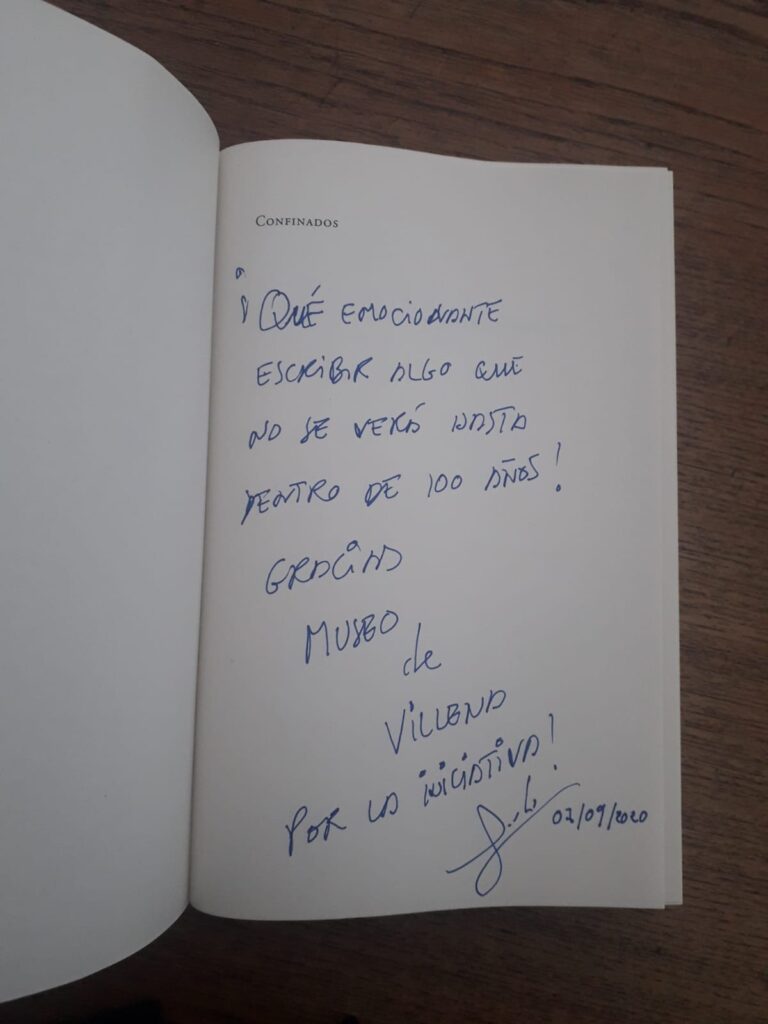 CONFINADOS
¡QUÉ EMOCIONANTE
ESCRIBIR ALGO QUE
NO SE VERÁ HASTA
DENTRO DE 100 AÑOS!
GRACIAS
MUSEO
de
VILLENA
POR LA INICIATIVA!
02/09/2020